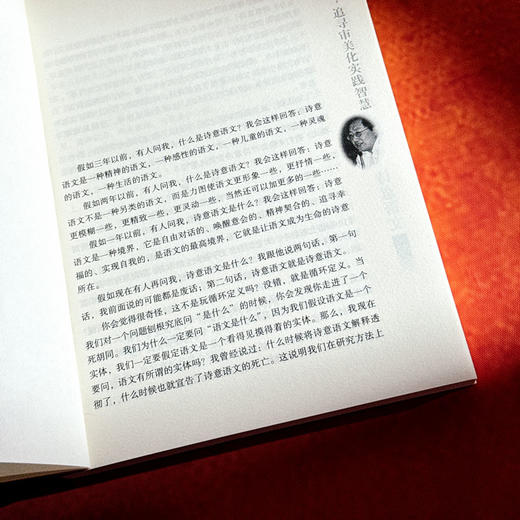 追寻审美化实践智慧
假如三年以前，有人问我，什么是诗意语文？我会这样回答：诗意
语文是一种精神的语文，一种感性的语文，一种儿童的语文，一种灵魂
的语文，一种生活的语文。
假如两年以前，有人问我，什么是诗意语文？我会这样回答：诗意
语文不是一种另类的语文，而是力图使语文更形象一些，更抒情一些，
更模糊一些，更精致一些，更灵动一些，当然还可以加更多的一些……
假如一年以前，有人问我，诗意语文是什么？我会这样回答：诗意
语文是一种境界，它是自由对话的、唤醒意会的、精神契合的、追寻幸
福的、实现自我的，是语文的最高境界，它就是让语文成为生命的诗意
所在。
假如现在有人再问我，诗意语文是什么？我跟他说两句话，第一句
话，我前面说的可能都是废话；第二句话，诗意语文就是诗意语文。
你会觉得很奇怪，这不是玩循环定义吗？没错，就是循环定义。当
我们对一个问题刨根究底问“是什么”的时候，你会发现你走进了一个
死胡同。我们为什么一定要问“语文是什么”，因为我们假设语文是一个
实体，我们一定要假定语文是一个看得见摸得着的实体。那么，我现在
要问，语文有所谓的实体吗？我曾经说过：什么时候将诗意语文解释透
彻了，什么时候也就宣告了诗意语文的死亡。这说明我们在研究方法上